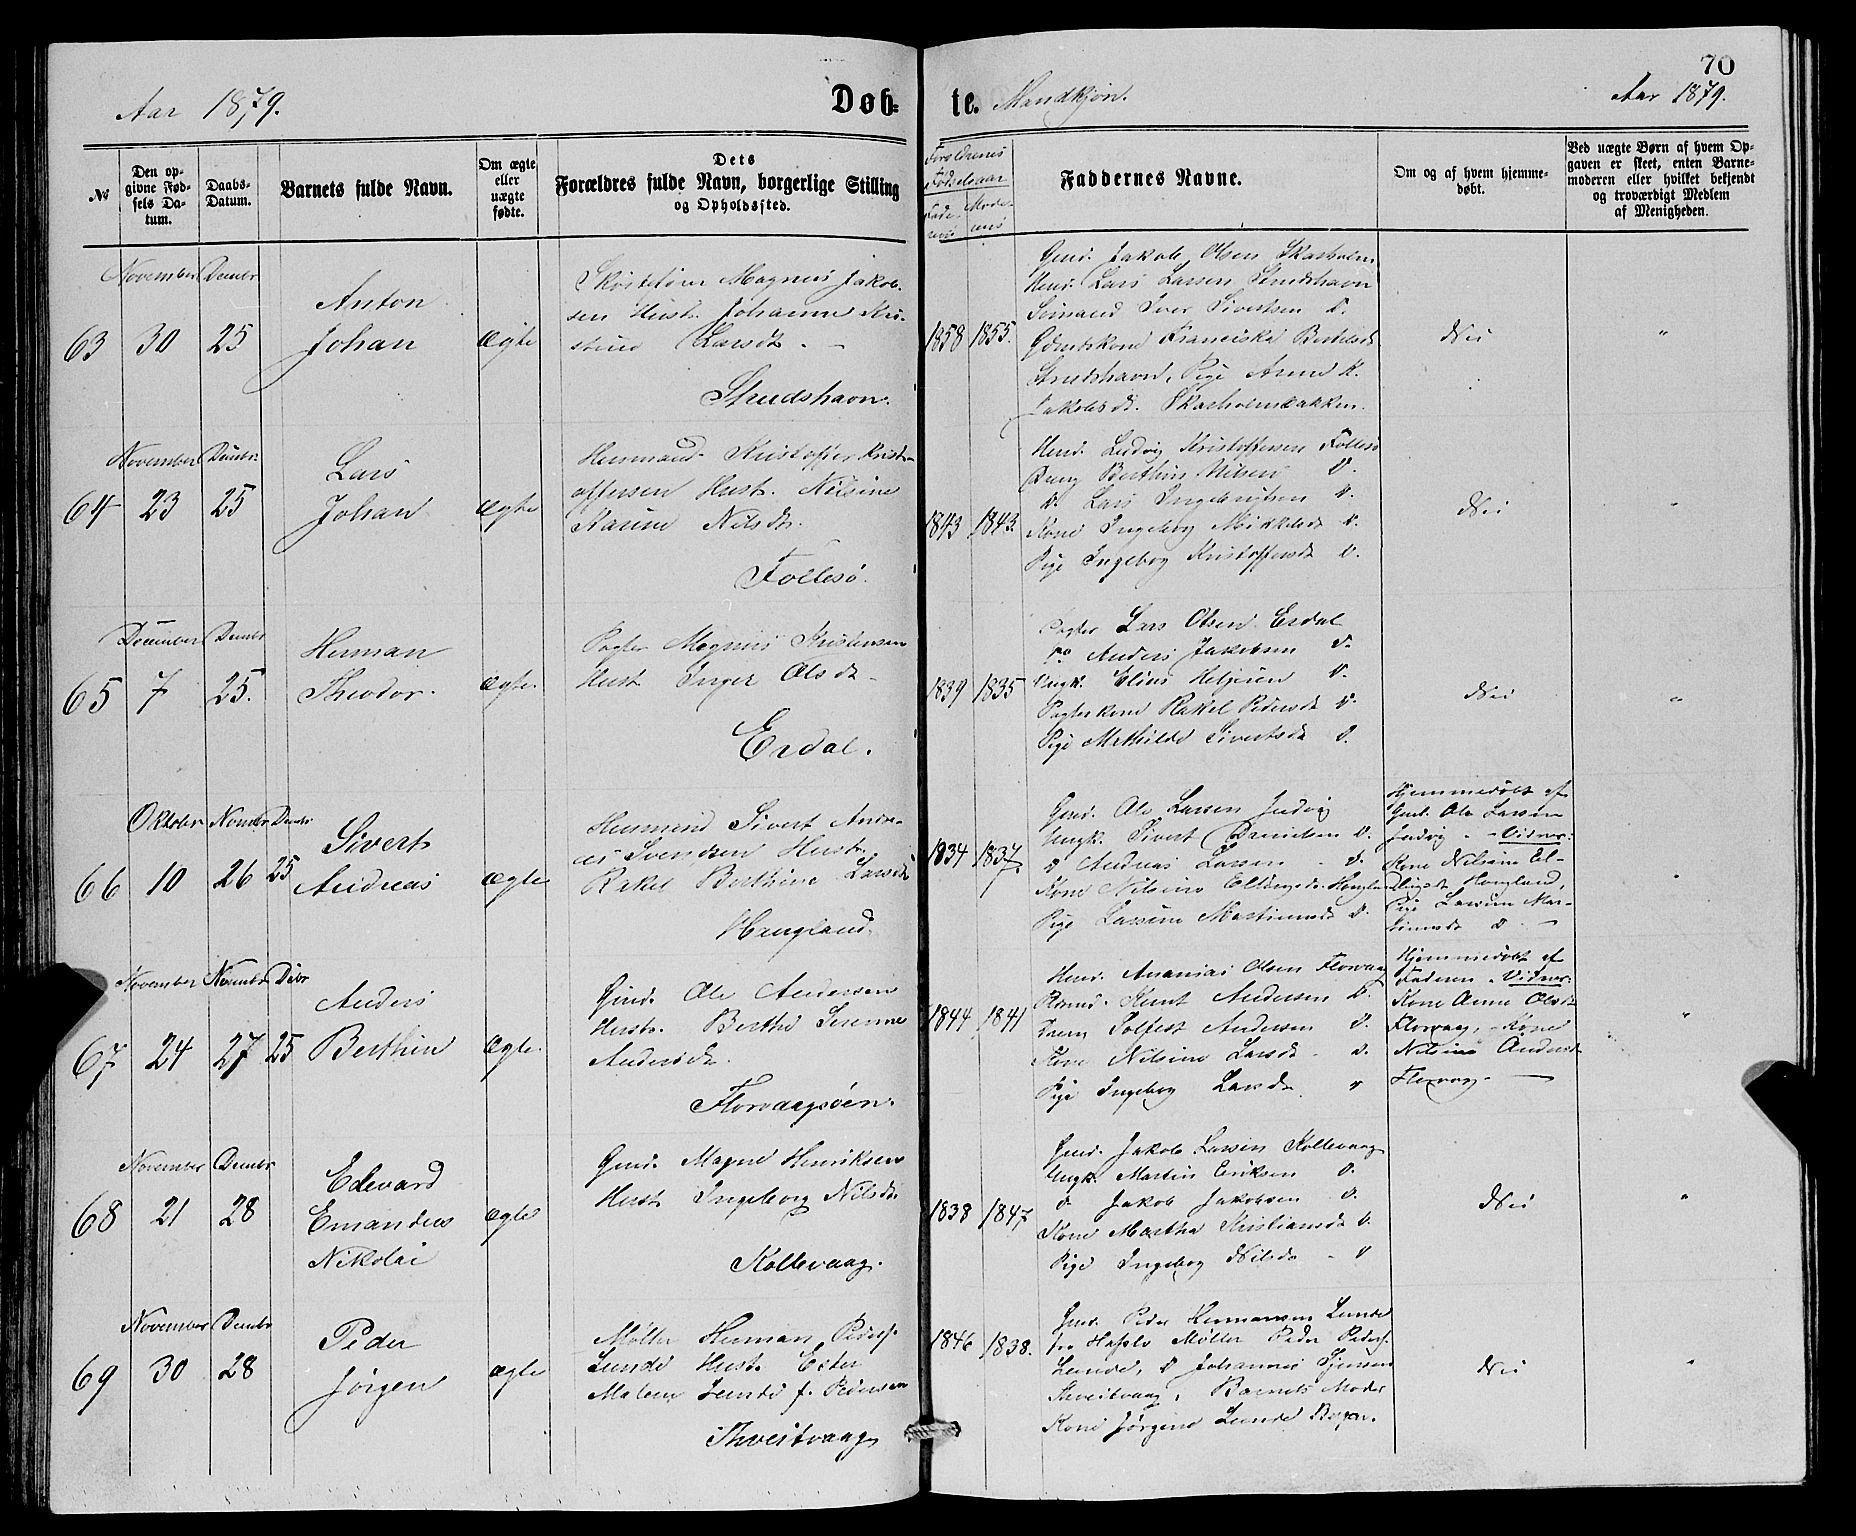 70
Aar 1879.
Døb-
te. Mandkjøn.
Aar 1879.
No
Den opgivne Fødsels Datum.
Daabs-Datum.
Barnets fulde Navn.
Om ægte eller uægte fødte.
Dets Forældres fulde Navn, borgerlige Stilling og Opholdssted.
Forældrenes Fødselsaar
Faderens
Moderens
Faddernes Navne.
Om og af hvem hjemmedøbt.
Ved uægte Børn af hvem Opgaven er skeet, enten Barnemoderen eller hvilket bekjendt og troværdigt Medlem af Menigheden.
November Dcmbr
63 30 25
Anton
Johan
ægte
Magnus Jakob-
sen Hust. Johanne Kri-
stine Larsdt.
Strudshavn.
1858 1855.
Gmd. Jakob Olsen Skarholm
Hmd. Lars Larsen Strudshavn
Sømand Iver Sivertsen d.
Gdmdskone Franciska Bertelsdt
Strudshavn, Pige Anne K.
Jakobsdt. Skarholmbakken.
Nei
"
November Dcmbr.
64 23 25
Lars
Johan
ægte
Husmand Kristoffer Krist-
offersen Hust. Nilsine
Karine Nilsdt.
Follesø.
1843 1843.
Hmd. Ludvig Kristoffersen Follesø
Dreng Berthin Nilsen d.
d. Lars Ingebrigtsen d.
Kone Ingeborg Mikkelsdt d.
Pige Ingeborg Kristoffersdt d.
Nei
"
December Dcmbr
65 7 25.
Herman
Theodor.
ægte
Pagter Magnus Kristensen
Hust Inger Olsdt
Erdal.
1839 1835
Pagter Lars Olsen Erdal
do Anders Jakobsen d.
Ungk. Elias Heljesen d.
Pagterkone Rakel Pedersdt d.
Pige Mathilde Sivertsdt d.
Nei
"
Oktober Novmbr Dcmbr
66 10 26 25
Sivert
Andreas
ægte
Husmand Sivert Andre-
as Svendsen Hust.
Rakel Berthine Larsdt
Haugland.
1834 1837
Gmd. Ole Larsen Judvig
Ungk. Sivert Danielsen d.
d Andreas Larsen d.
Kone Nilsine Ellingsdt. Haugland
Pige Larsine Martinusdt d.
Hjemmedøbt af
Gmd. Ole Larsen
Judvig - Vidner:
Kone Nilsine El-
lingsdt Haugland,
Pige Larsine Mar-
tinusdt d
"
November Novmbr Dcbr
67 24 27 25
Anders
Berthin
ægte.
Gmd. Ole Andersen
Hust. Berthe Serene
Andersdt.
Florvaagsøen.
1844 1841
Hmd. Ananias Olsen Florvaag
Knut Andersen d.
Solfest Andersen d.
Kone Nilsine Larsdt d.
Pige Ingeborg Larsdt d
Hjemmedøbt af
Faderen - Vidner:
Kone Anne Olsdt
Florvaag, - Kone
Nilsine Andersdt
Florvaag.
"
November Dcmbr
68 21 28
Edevard
Emandus
Nikolai
ægte
Gmd. Magne Henriksen
Hust Ingeborg Nilsdt
Kollevaag.
1838 1847
Gmd. Jakob Larsen Kollevaag
Ungk. Martin Eriksen d.
d Jakob Jakobsen d.
Kone Martha Kristiansdt d.
Pige Ingeborg Nilsdt d
Nei
"
November Dcmbr
69 30 28
Peder
Jørgen
ægte
Møller Herman Peders.
Lunde Hust. Ester
Malene Lunde f. Pedersen
Thveitvaag
1846 1838.
Gmd. Peder Hermansen Lunde
fra Hafslo Møller Peder Peders.
Lunde, d Johannes
Thveitvaag, Barnets Moder
Kone Jørgine Lunde Bergen.
Nei
"